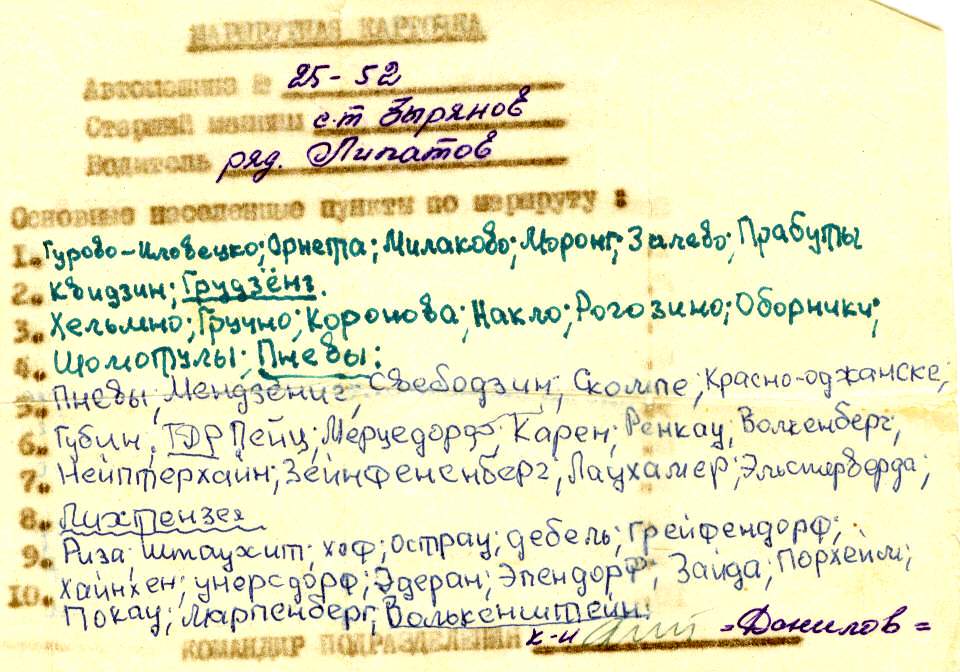 МАРШРУТНАЯ КАРТОЧКА
Автомашина № 25-52
Старший машины с-т Зырянов
Водитель ряд. Липатов
Основные населенные пункты по маршруту :
1. Гурово-Иловецко; Орнета; Милаково; Моронг; Залево; Прабуты
2. Квидзин; Грудзёнз.
3. Хельмно; Гручно; Коронова; Накло; Рогозино; Оборники;
4. Шомотулы; Пневы;
5. Пневы; Мендзениг; Свебодзин; Скомпе; Красно-оджанске;
6. Губин; ГДР Пейц; Мерцедорф; Карен; Ренкау; Волкенберг;
7. Нейптерхайн; Зейнфененберг; Лаухамер; Эльстерверда;
8. Лихтензея
9. Риза; штаухит; хоф; острау; дебель; грейфендорф;
10. Хайнхен; унерсдорф; Эдеран; Эпендорф; Зайда; Порхейм;
Покау; Марпенберг; Волькенштейн.
КОМАНДИР ПОДРАЗДЕЛЕНИЯ к-н =Данилов=